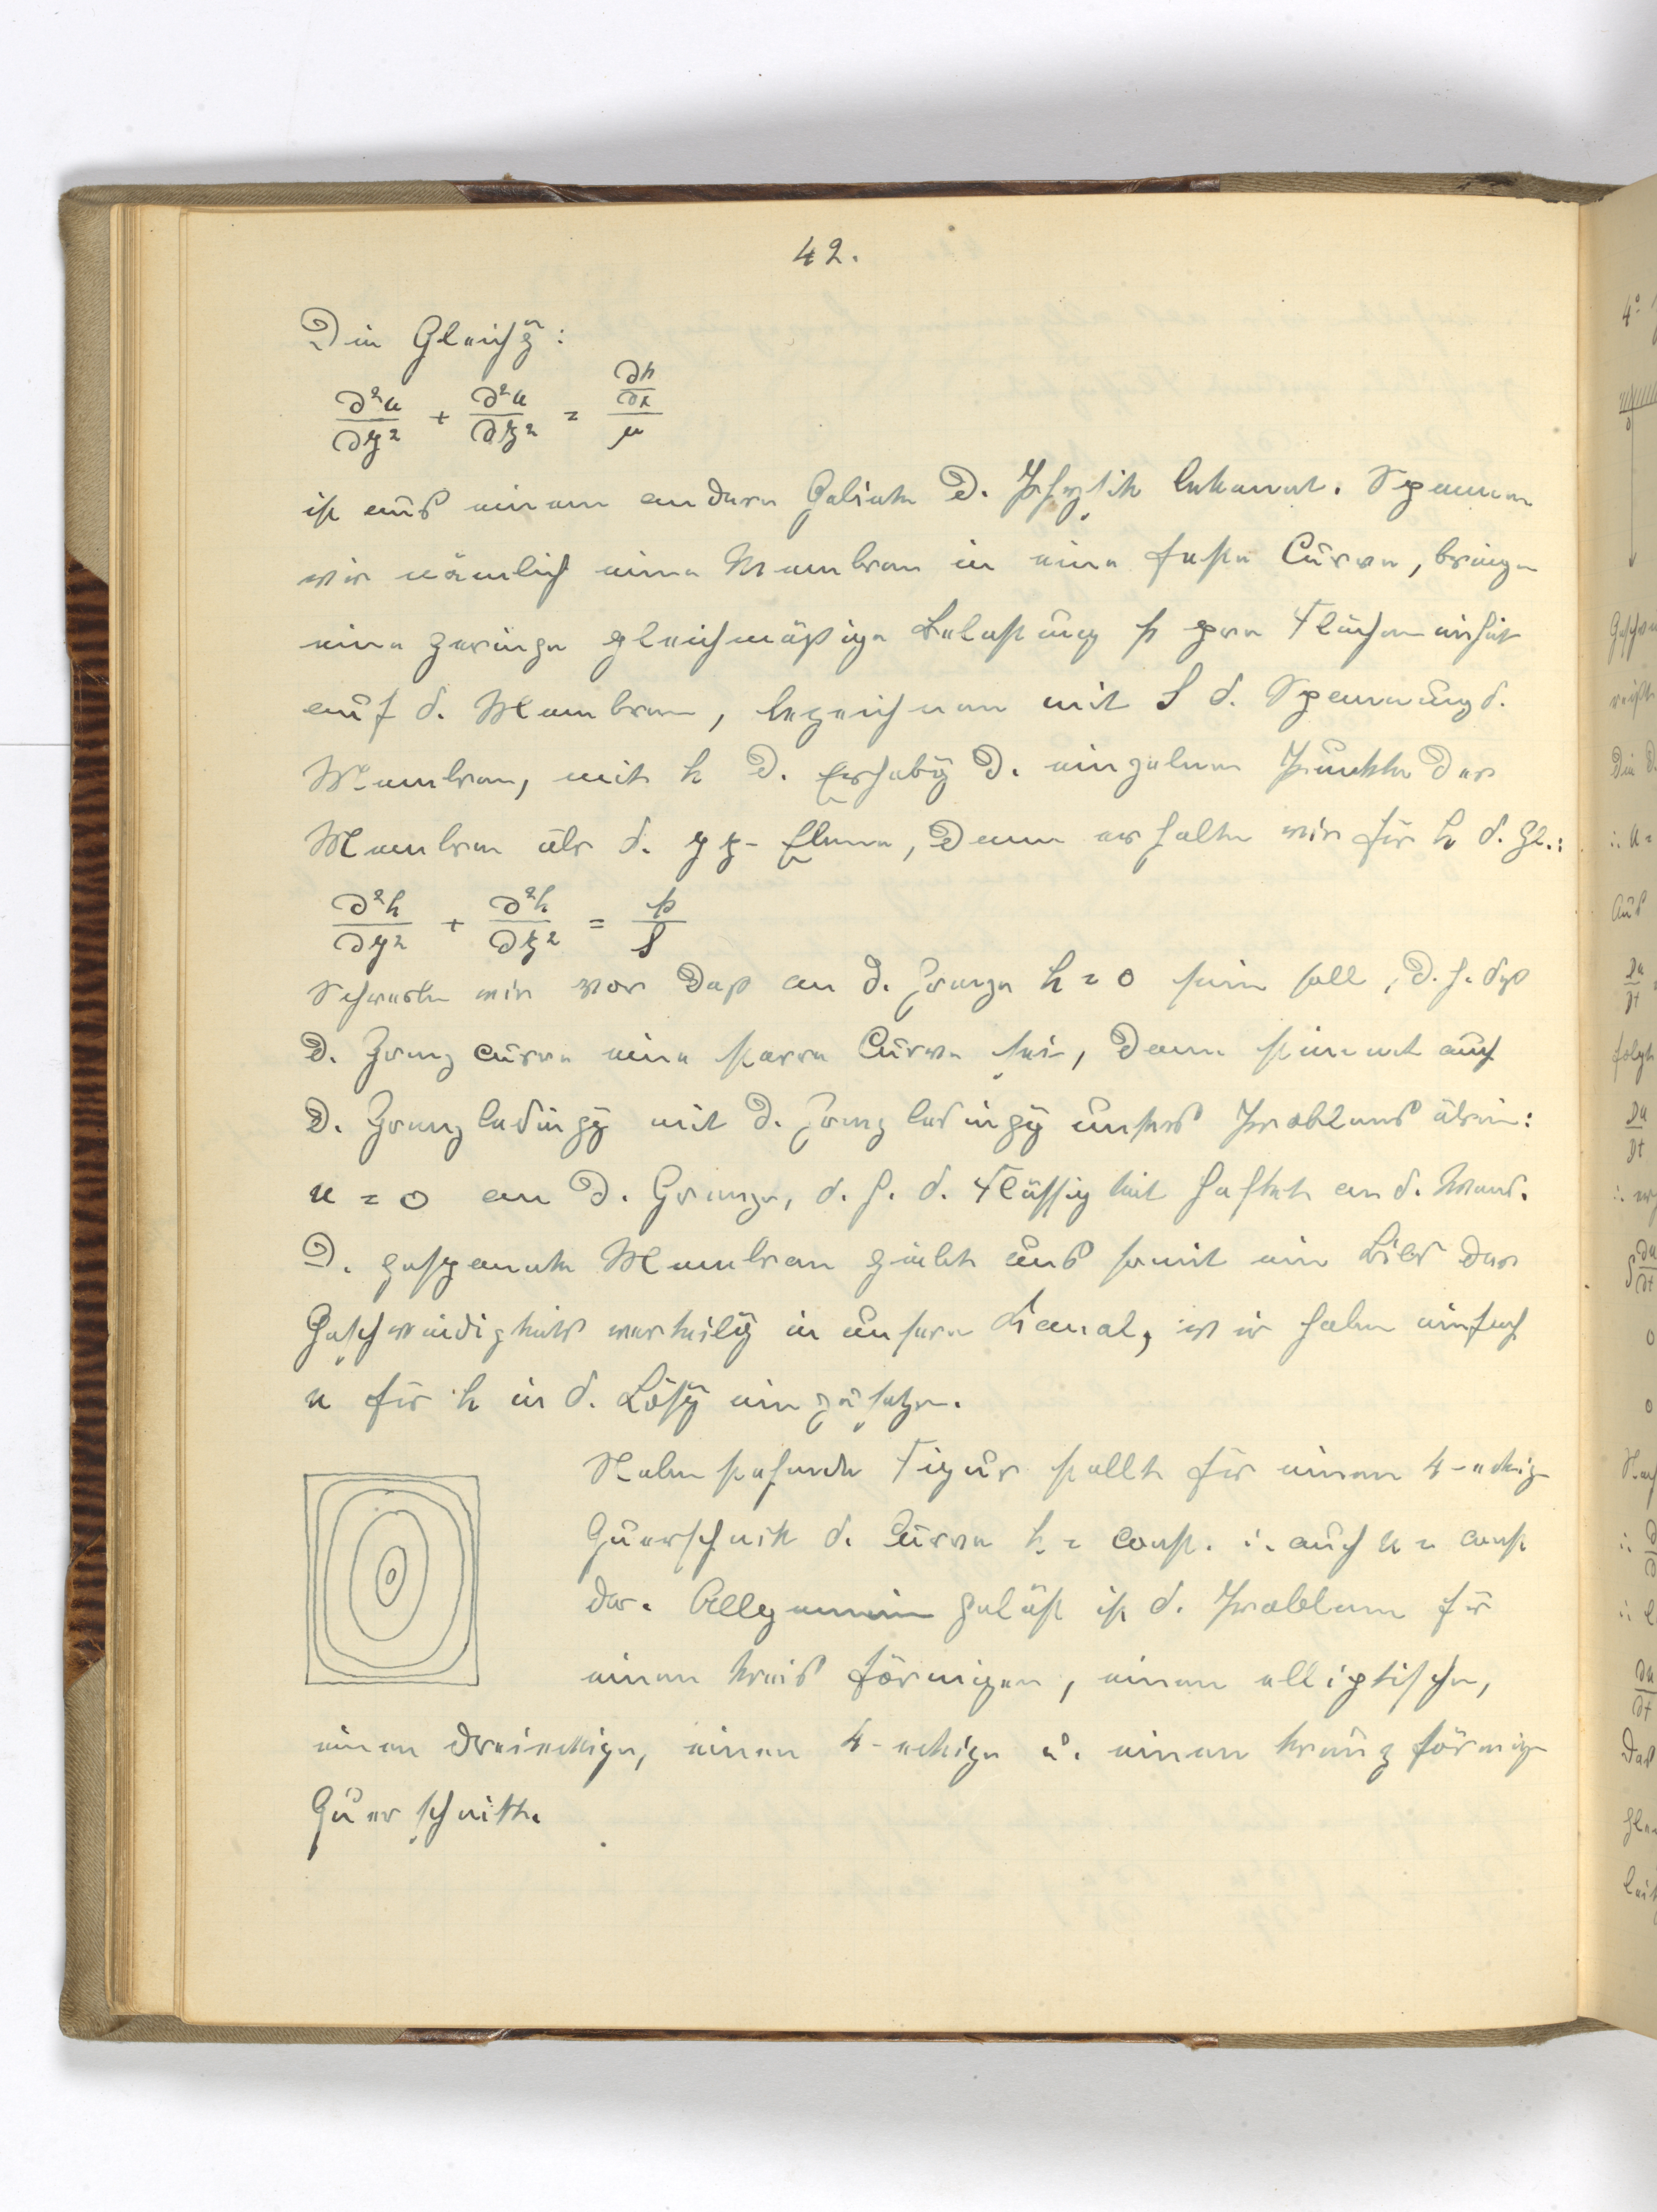 42.
Die Gleichg̃:
∂²u/∂y² + ∂²u/∂z² = (∂p/∂x)/μ
ist aus einem andern Gebiete d. Physik bekannt. Spannen
wir nämlich eine Membran in eine feste Curve, bringen
eine geringe gleichmäßige Belastung p pro Flächeneinheit
auf d. Membran, bezeichnen mit S d. Spannung d.
Membran, mit h d. Erhebg̃ d. einzelnen Punkte der
Membran über d. yz-Ebene, dann erhalten wir für h d. Gl.:
∂²h/∂y² + ∂²h/∂z² = p/S
Schreiben wir vor daß an d. Grenze h = 0 sein soll, d. h. daß
d. Grenzcurve eine starre Curve sei, dann stimmt auch
d. Grenzbedingg̃ mit d. Grenzbedingg̃ unsres Problems überein:
u = 0 an d. Grenze, d. h. d. Flüssigkeit haftet an d. Wand.
D. gespannte Membran giebt uns somit ein Bild der
Geschwindigkeitsverteilg̃ in unserm Kanal, wir haben einfach
u für h in d. Lösg̃ einzusetzen.
Nebenstehende Figur stellt für einen 4-eckigen
Querschnitt d. Curven h = const. ∴ auch u = const
dar. Allgemein gelöst ist d. Problem für
einen kreisförmigen, einen elliptischen,
einen dreieckigen, einen 4-eckigen u. einen kranzförmigen
Querschnitt.